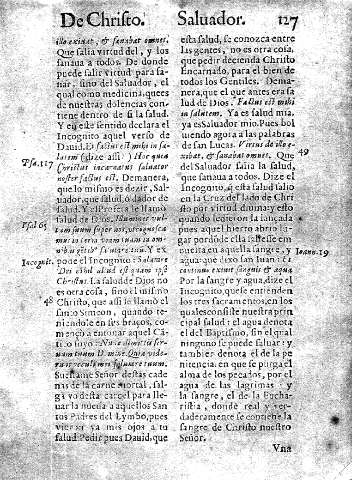 De Christo. Saluador. 127
illo exibat, & sanabat omnes.
Que salia virtud del, y los
sanaua a todos. De donde
puede salir virtud para sa-
nar, sino del Saluador, el
qual como medicina, q̃ uees
de nuestras dolencias con
tiene dentro de si la salud.
Y en este sentido declara el
Incognito aquel verso de
Dauid. Et factus est mihi in sa-
Psa. 117
lutem (dize assi) Hoc qua
Christus incarnatus saluator
noster factus est. Demanera,
que lo mismo es dezir, Sal-
uador, que salud, o dador de
salud. Y el
salud
Psal 65
Incognit.
pode el Incognito: Salutare
Dei nihil aliud est quam ipse
Christus. La salud de Dios no
es otra cosa, sino el mismo
48
Christo, que assi le llamó el
santo Simeon, quando te-
niendole en sus braços, co-
mençó a entonar aquel Cã-
tico suyo: Nunc dimittis ser-
uum tuum Domine. Quia vide-
runt oculi mei salutare tuum.
Sueltame Señor destas cade
nas de la carne mortal, sal-
ga yo desta carcel para lle-
uar la nueua a aquellos San
tos Padres del Lymbo, pues
vieron ya mis ojos a tu
salud. Pedir pues Dauid, que
esta salud, se conozca entre
las gentes, no es otra cosa,
que pedir decienda Christo
Encarnado, para el bien de
todos los Gentiles. Dema-
nera, que el que antes era sa
lud de Dios. Factus est mihi
in salutem. Ya es salud mia,
ya es Saluador mio. Pues bol
uiendo agora a las palabras
de san Lucas. Virtus de illo e-
xibat, & sanabat omnes. Que
49
del Saluador salia la salud,
que sanaua a todos. Dize el
Incognito, q̃ esta salud salio
en la Cruz del lado de Christo
por virtud diuina: y esto
quando le dieron la lançada
pues aquel hierro abrio lu-
gar por donde ella saliesse em
buelta en aquella sangre, y
agua que dixo san Iuan: Et
Ioann. 19
continuo exiuit sanguis & aqua
Por la sangre y agua, dize el
Incognito, que se entienden
los tres sacramentos, en los
quales consiste nuestra prin
cipal salud: el agua denota
el del Baptismo, sin el qual
ninguno se puede saluar: y
tambien denota el de la pe
nitencia, en que se purga el
alma de los pecados, por el
agua de las lagrimas: y
la sangre, el de la Eucha-
ristia, donde real y ver-
daderamente se contiene la
sangre de Christo nuestro
Señor.
Vna